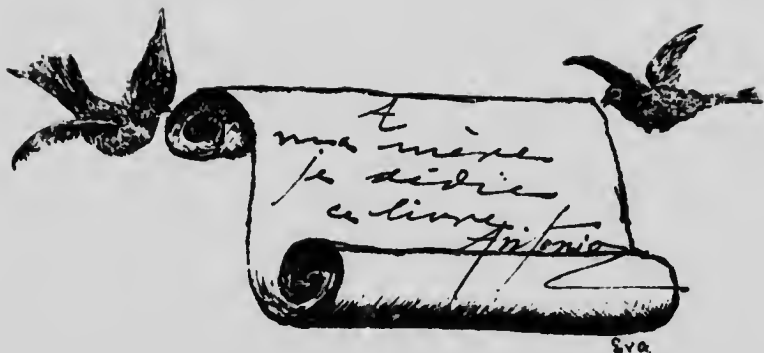 A
ma mère
je dédie
ce livre
Antonio
Eva